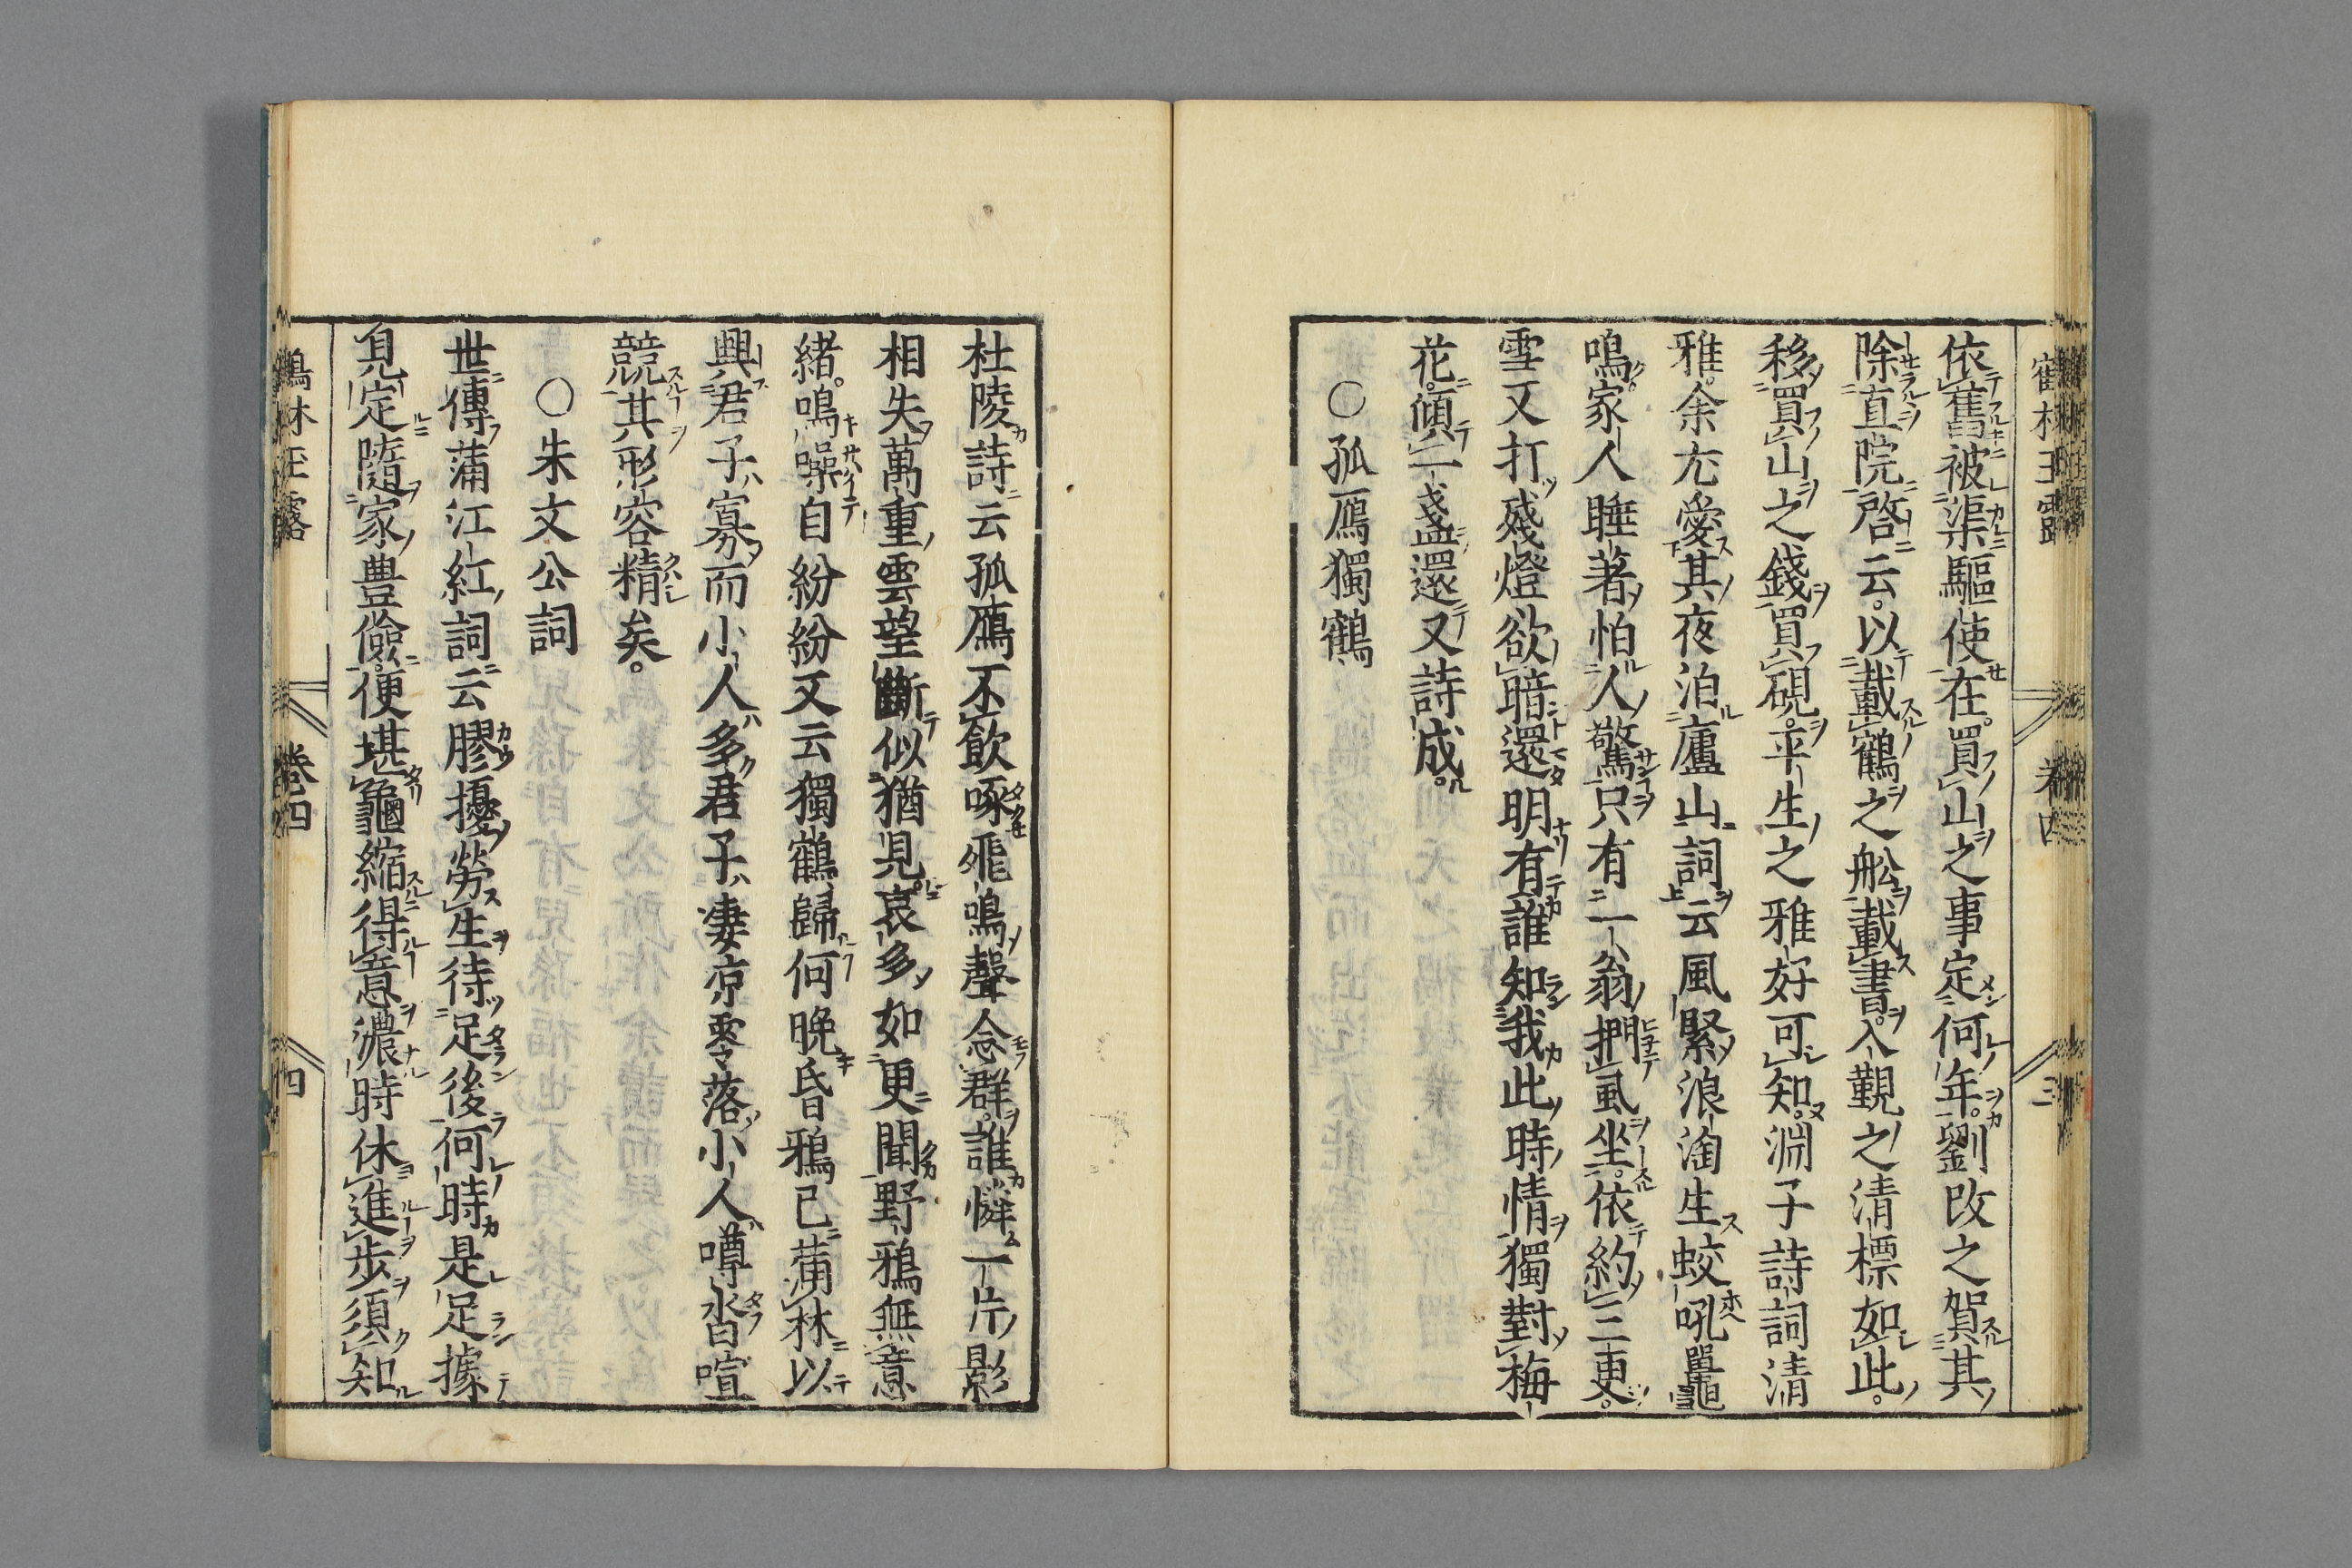 依舊被渠驅使在。買山之事定何年。劉改之賀其
除直院啓云。以載鶴之舩載書。入觀之清標如此。
移買山之錢買硯。平生之雅好可知。淵子詩詞清
雅。余尤愛其夜泊廬山詞云風緊浪淘生蛟吼鼉
鳴。家人睡著怕人驚只有一翁捫虱坐。依約三更。
雪又打殘燈欲暗還明有誰知我此時情獨對梅
花。傾一盞還又詩成。
〇孤鴈獨鶴
杜陵詩云孤鴈不飲啄飛鳴聲念群。誰憐一片影
相失萬重雲望斷似猶見。哀多如更聞野鴉無意
緒。鳴噪自紛紛又云獨鶴歸何晚昏鴉已滿林以
興君子寡而小人多君子凄凉零落小人噂沓喧
競其形容精矣。
〇朱文公詞
世傳滿江紅詞云膠擾勞生待足後何時是足據
見定隨家豊儉。便堪龜縮得意濃時休進步須知
霍林玉露
卷四
三
鶴林玉露
卷四
四